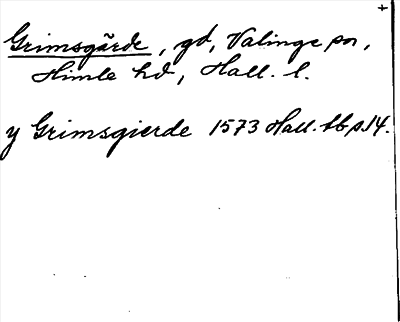 +
Grimsgärde, gd, Valinge sn,
Himle hd, Hall. l.
y Grimsgierde 1573 Hall. tb s. 14.